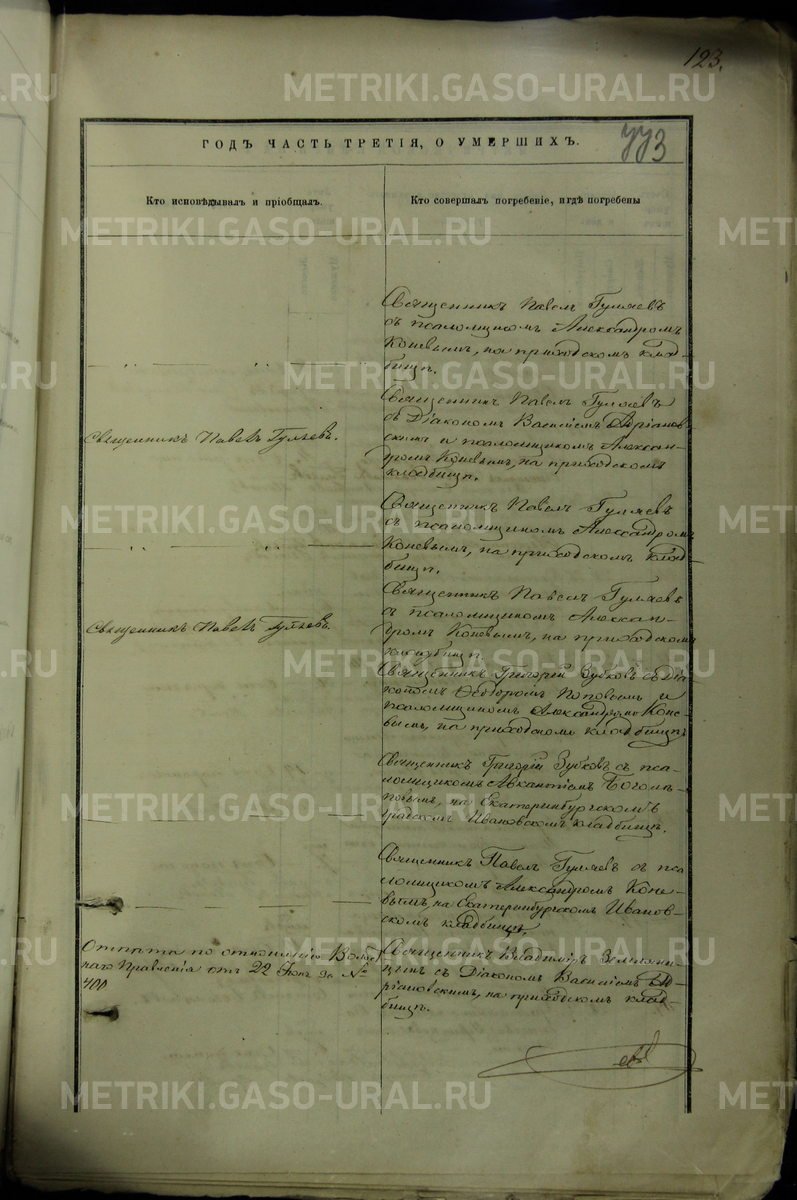 123.
ГОДЪ ЧАСТЬ ТРЕТІЯ, О УМЕРШИХЪ.
773
Кто исповѣдывалъ и пріобщалъ.
Кто совершалъ погребеніе, и гдѣ погребены
Священникъ Павелъ Гуляевъ
съ псаломщикомъ Александромъ
Коневымъ, на приходскомъ клад-
бищѣ.
Священникъ Павелъ Гуляевъ.
Священникъ Павелъ Гуляевъ
съ Діакономъ Василіемъ Адріанов-
скимъ и псаломщикомъ Алексан-
дромъ Коневымъ, на приходскомъ
кладбищѣ.
Священникъ Павелъ Гуляевъ
съ псаломщикомъ Александромъ
Коневымъ, на приходскомъ клад-
бищѣ.
Священникъ Павелъ Гуляевъ.
Священникъ Павелъ Гуляевъ
съ псаломщикомъ Алексан-
дромъ Коневымъ, на приходскомъ
кладбищѣ.
Священникъ Григорій Зубковъ съ Діа-
кономъ Ѳеодоромъ Поповымъ и
псаломщикомъ Александромъ Коне-
вымъ, на приходскомъ кладбищѣ
Священникъ Григорій Зубковъ съ пса-
ломщикомъ Богоми-
повымъ, на Екатеринбургскомъ
градскомъ Ивановскомъ кладбищѣ.
Священникъ Павелъ Гуляевъ съ пса
ломщикомъ Александромъ Коне-
вымъ, на Екатеринбургскомъ Иванов-
скомъ кладбищѣ.
по отношенію
наго Правленія отъ 22 за №
400
Священникъ Владиміръ Земляни-
цынъ съ Діакономъ Василіемъ Ад-
ріановскимъ, на приходскомъ клад-
бищѣ.
METRIKI.GASO-URAL.RU